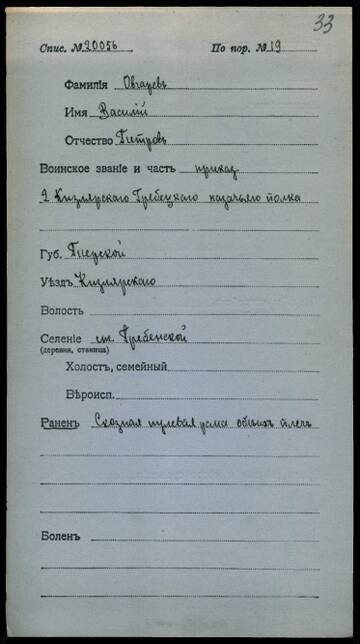 33
Спис. № 20056 По пор. № 19
Фамилія Овчаревъ
Имя Василій
Отчество Петровъ
Воинское званіе и часть приказ
2 Кизлярскаго Гребецкаго казачьяго полка
Губ. Терской
Уѣздъ Кизлярскаго
Волость
Селеніе ст. Гребенской
(деревня, станица)
Холостъ, семейный
Вѣроисп.
Раненъ Сквозная пулевая рана обоихъ плечъ
Боленъ